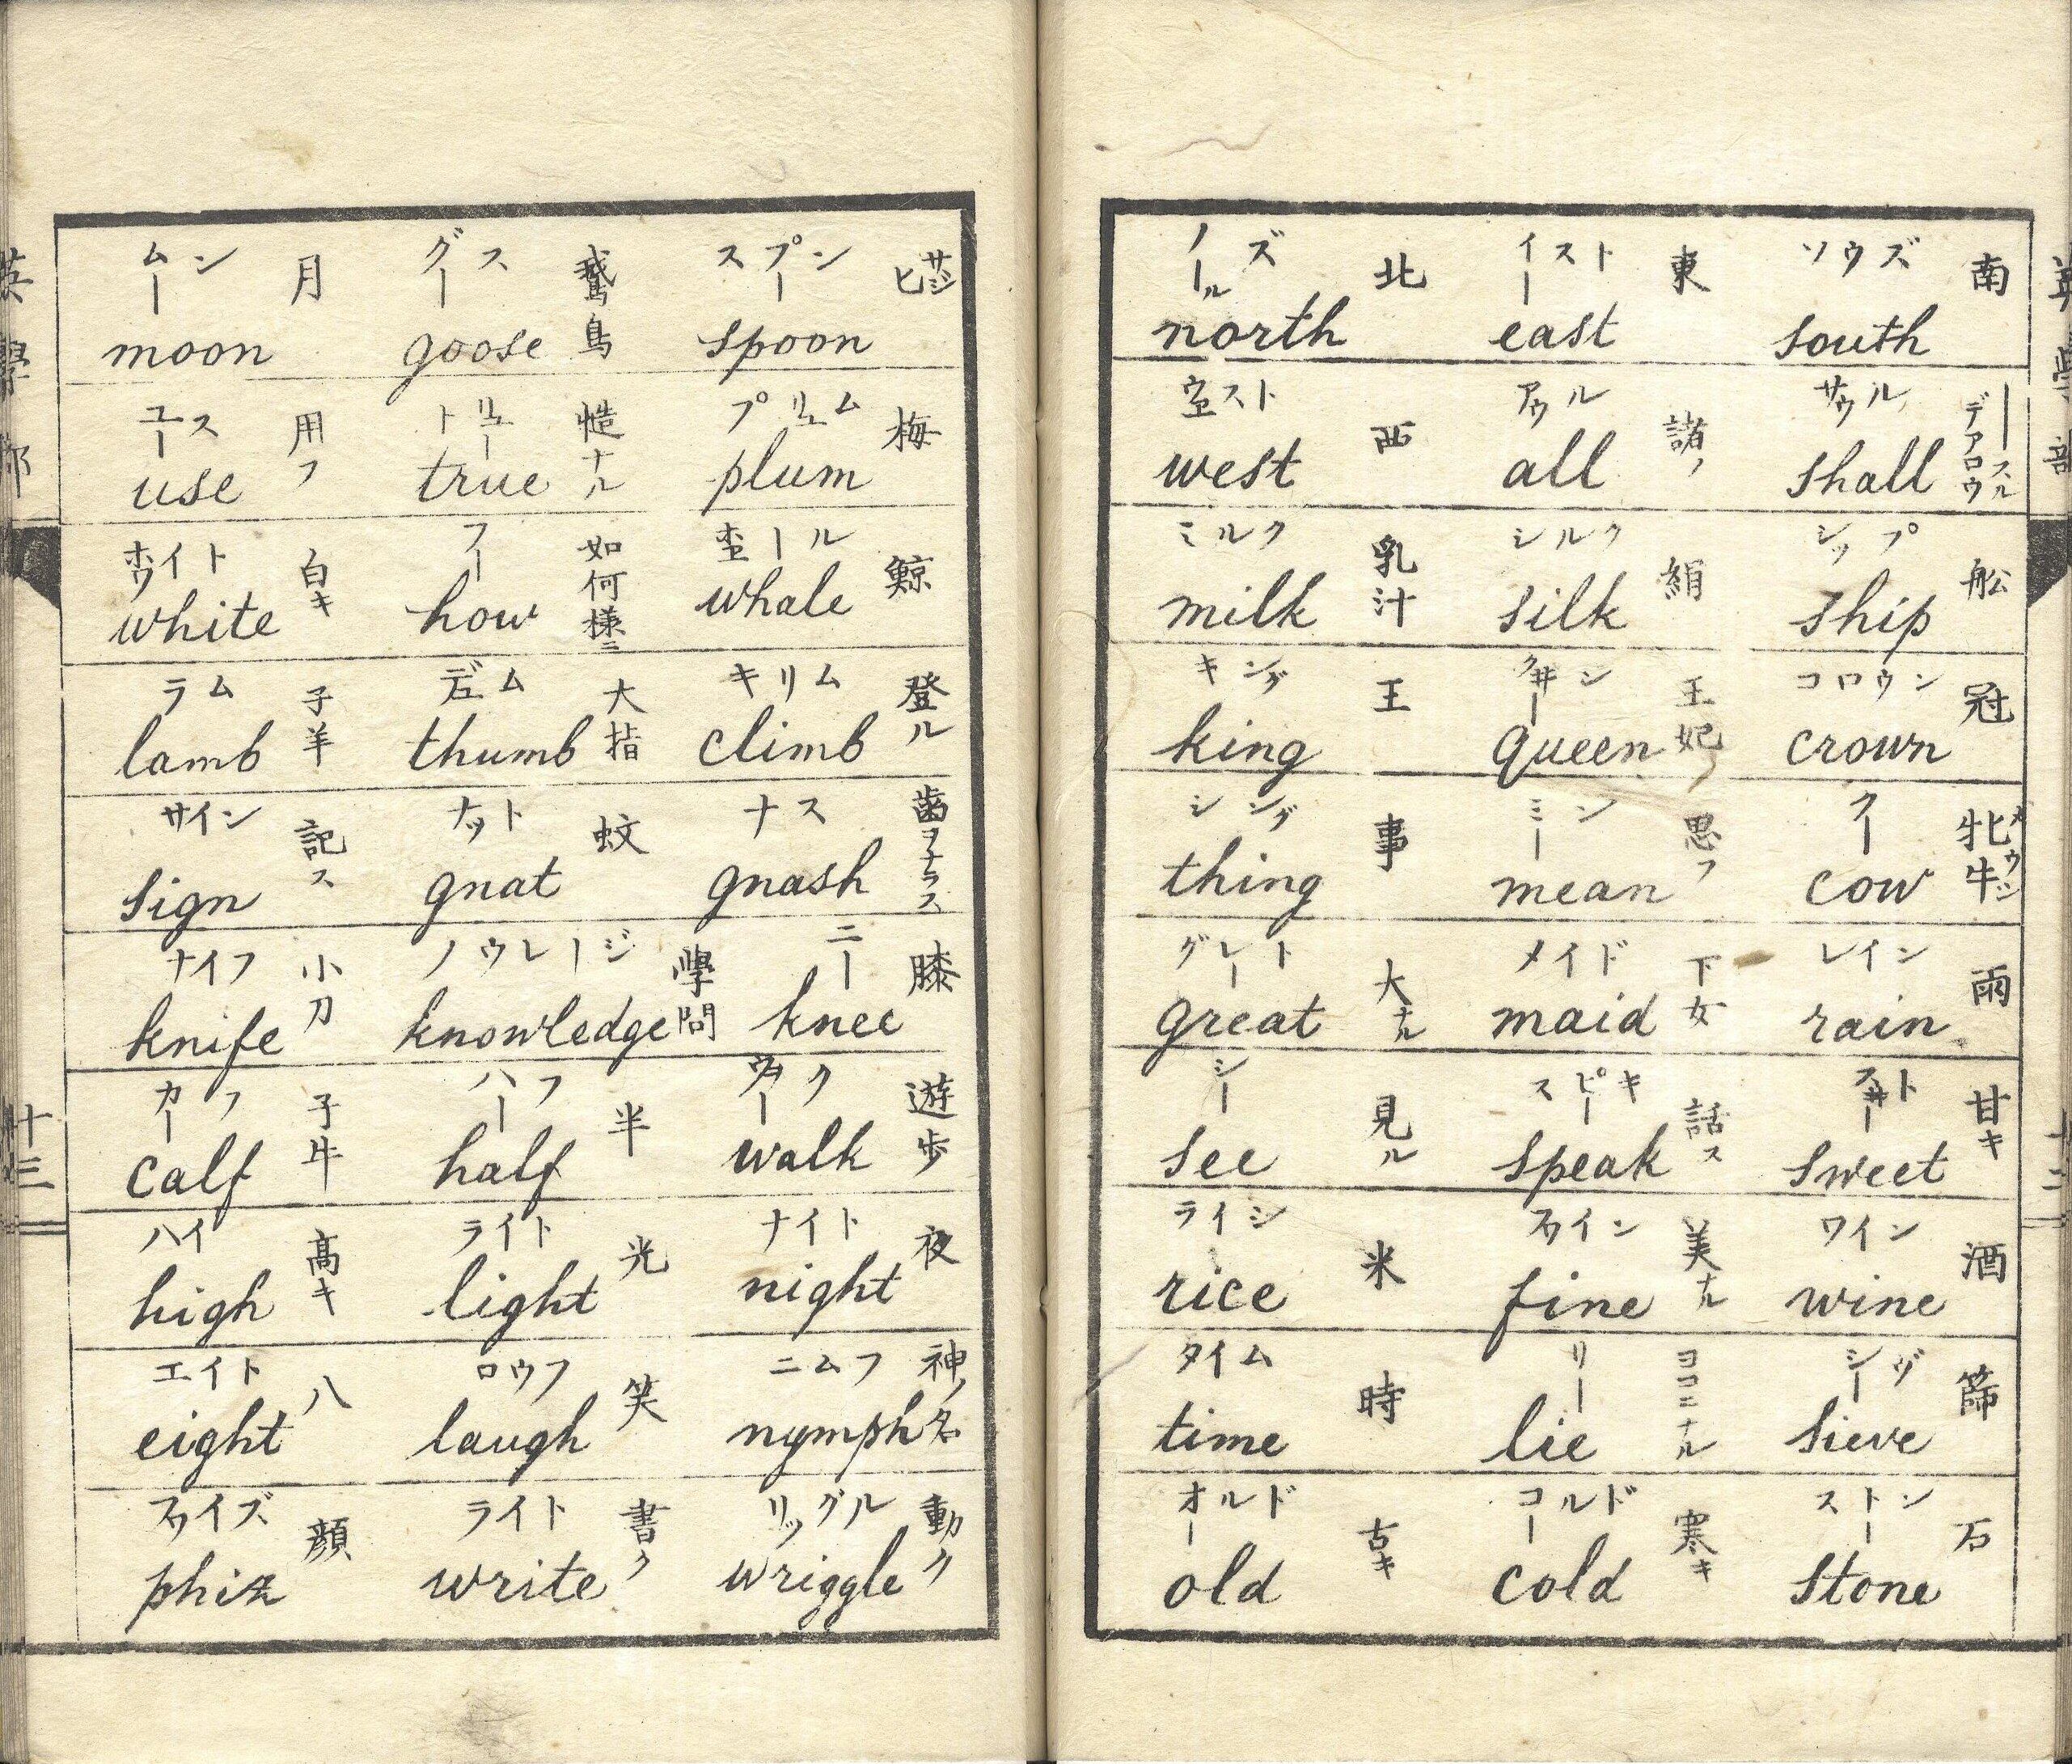 ノールズ 北 イースト 東 ソウズ 南
north east south
ウエスト 西 アウル 諸ノ サウル ―スル デアロウ
west all shall
ミルク 乳汁 シルク 絹 シップ 舩
milk silk ship
キング 王 クヰーン 王妃 コロウン 冠
king queen crown
シング 事 ミーン 思フ クー 牝牛 メウシ
thing mean cow
グレート 大ナル メイド 下女 レイン 雨
great maid rain
シー 見ル スピーキ 話ス スヰート 甘キ
see speak sweet
ライシ 米 フワイン 美ナル ワイン 酒
rice fine wine
タイム 時 リー ヨコニナル シーヴ 篩
time lie sieve
オールド 古キ コールド 寒キ ストーン 石
old cold stone
ムーン 月 グース 鵞鳥 スプーン 匕 サジ
moon goose spoon
ユース 用フ トリュー 慥ナル プリュム 梅
use true plum
ホワイト 白キ フー 如何様ニ ホエール 鯨
white how whale
ラム 子羊 デュム 大指 キリム 登ル
lamb thumb climb
サイン 記ス ナット 蚊 ナス 歯ヲナラス
sign gnat gnash
ナイフ 小刀 ノウレージ 學問 ニー 膝
knife knowledge knee
カーフ 子牛 ハーフ 半 ウオーク 遊歩
calf half walk
ハイ 高キ ライト 光 ナイト 夜
high light night
エイト 八 ロウフ 笑 ニムフ 神ノ名
eight laugh nymph
フワイズ 顔 ライト 書ク リッグル 動ク
phiz write wriggle
英學部
十三